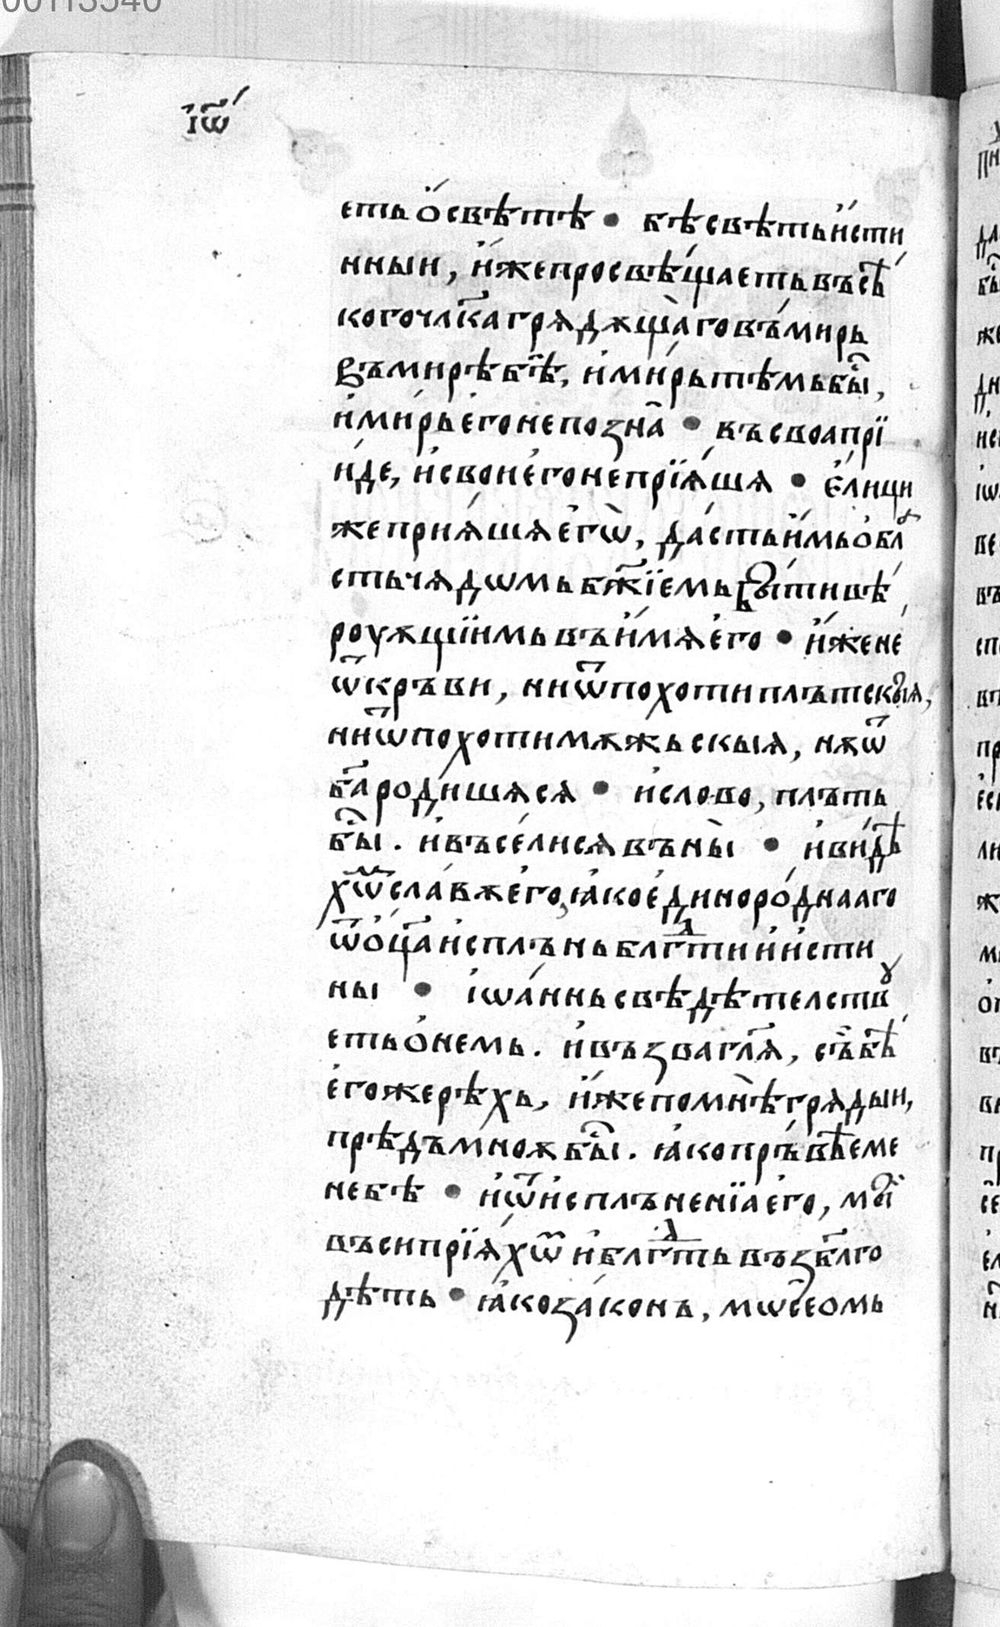 00113540
і҆ѡ҃
еть ѡ҆ свѣтѣ • бѣ свѣть и҆сти
нныи, и҆же просвѣщаеть въсѣ
кого чл҃ка грядѫщаго въ мирь
Въ мирѣ бѣ, и҆ мирь тѣмь бы҇,
и҆ мирь е҆го не позна • въ своа прїи
иде, и҆ свои е҆го не прїяшя • е҆лици
же прияшя е҆гѡ, дасть и҆мь ѡ҆бла
сть чядѡмь бж҃їемь быти вѣ
роуѫщїимь въ и҆мя е҆го • и҆же не
ѿ крьви, ни ѿ похоти плътскыя,
ни ѿ похоти мѫжьскыя, нѫ ѿ
ба҃ родишяся • и҆ слово, плъть
бы҇. и҆ въселися въ ны • и҆ видѣ
хѡ҃ славѫ е҆го, ꙗко е҆динороднааго
ѿ ѡ҆ц҃а и҆сплънь блгⷣти и҆ и҆сти
ны • і҆ѡаннь свѣдѣтелству
еть ѡ҆ немь. и҆ възва гл҃я, съ бѣ
е҆гоже рѣхь, и҆же по мнѣ грядыи,
прѣдъ мноѫ бы҇. ꙗко пръвѣе ме
не бѣ • и҆ ѿ и҆сплъненїа е҆го, мы
въси прїяхѡм и҆ блгⷣть въз бл҃го
дѣть • ꙗко законъ, мѡѵсеомь